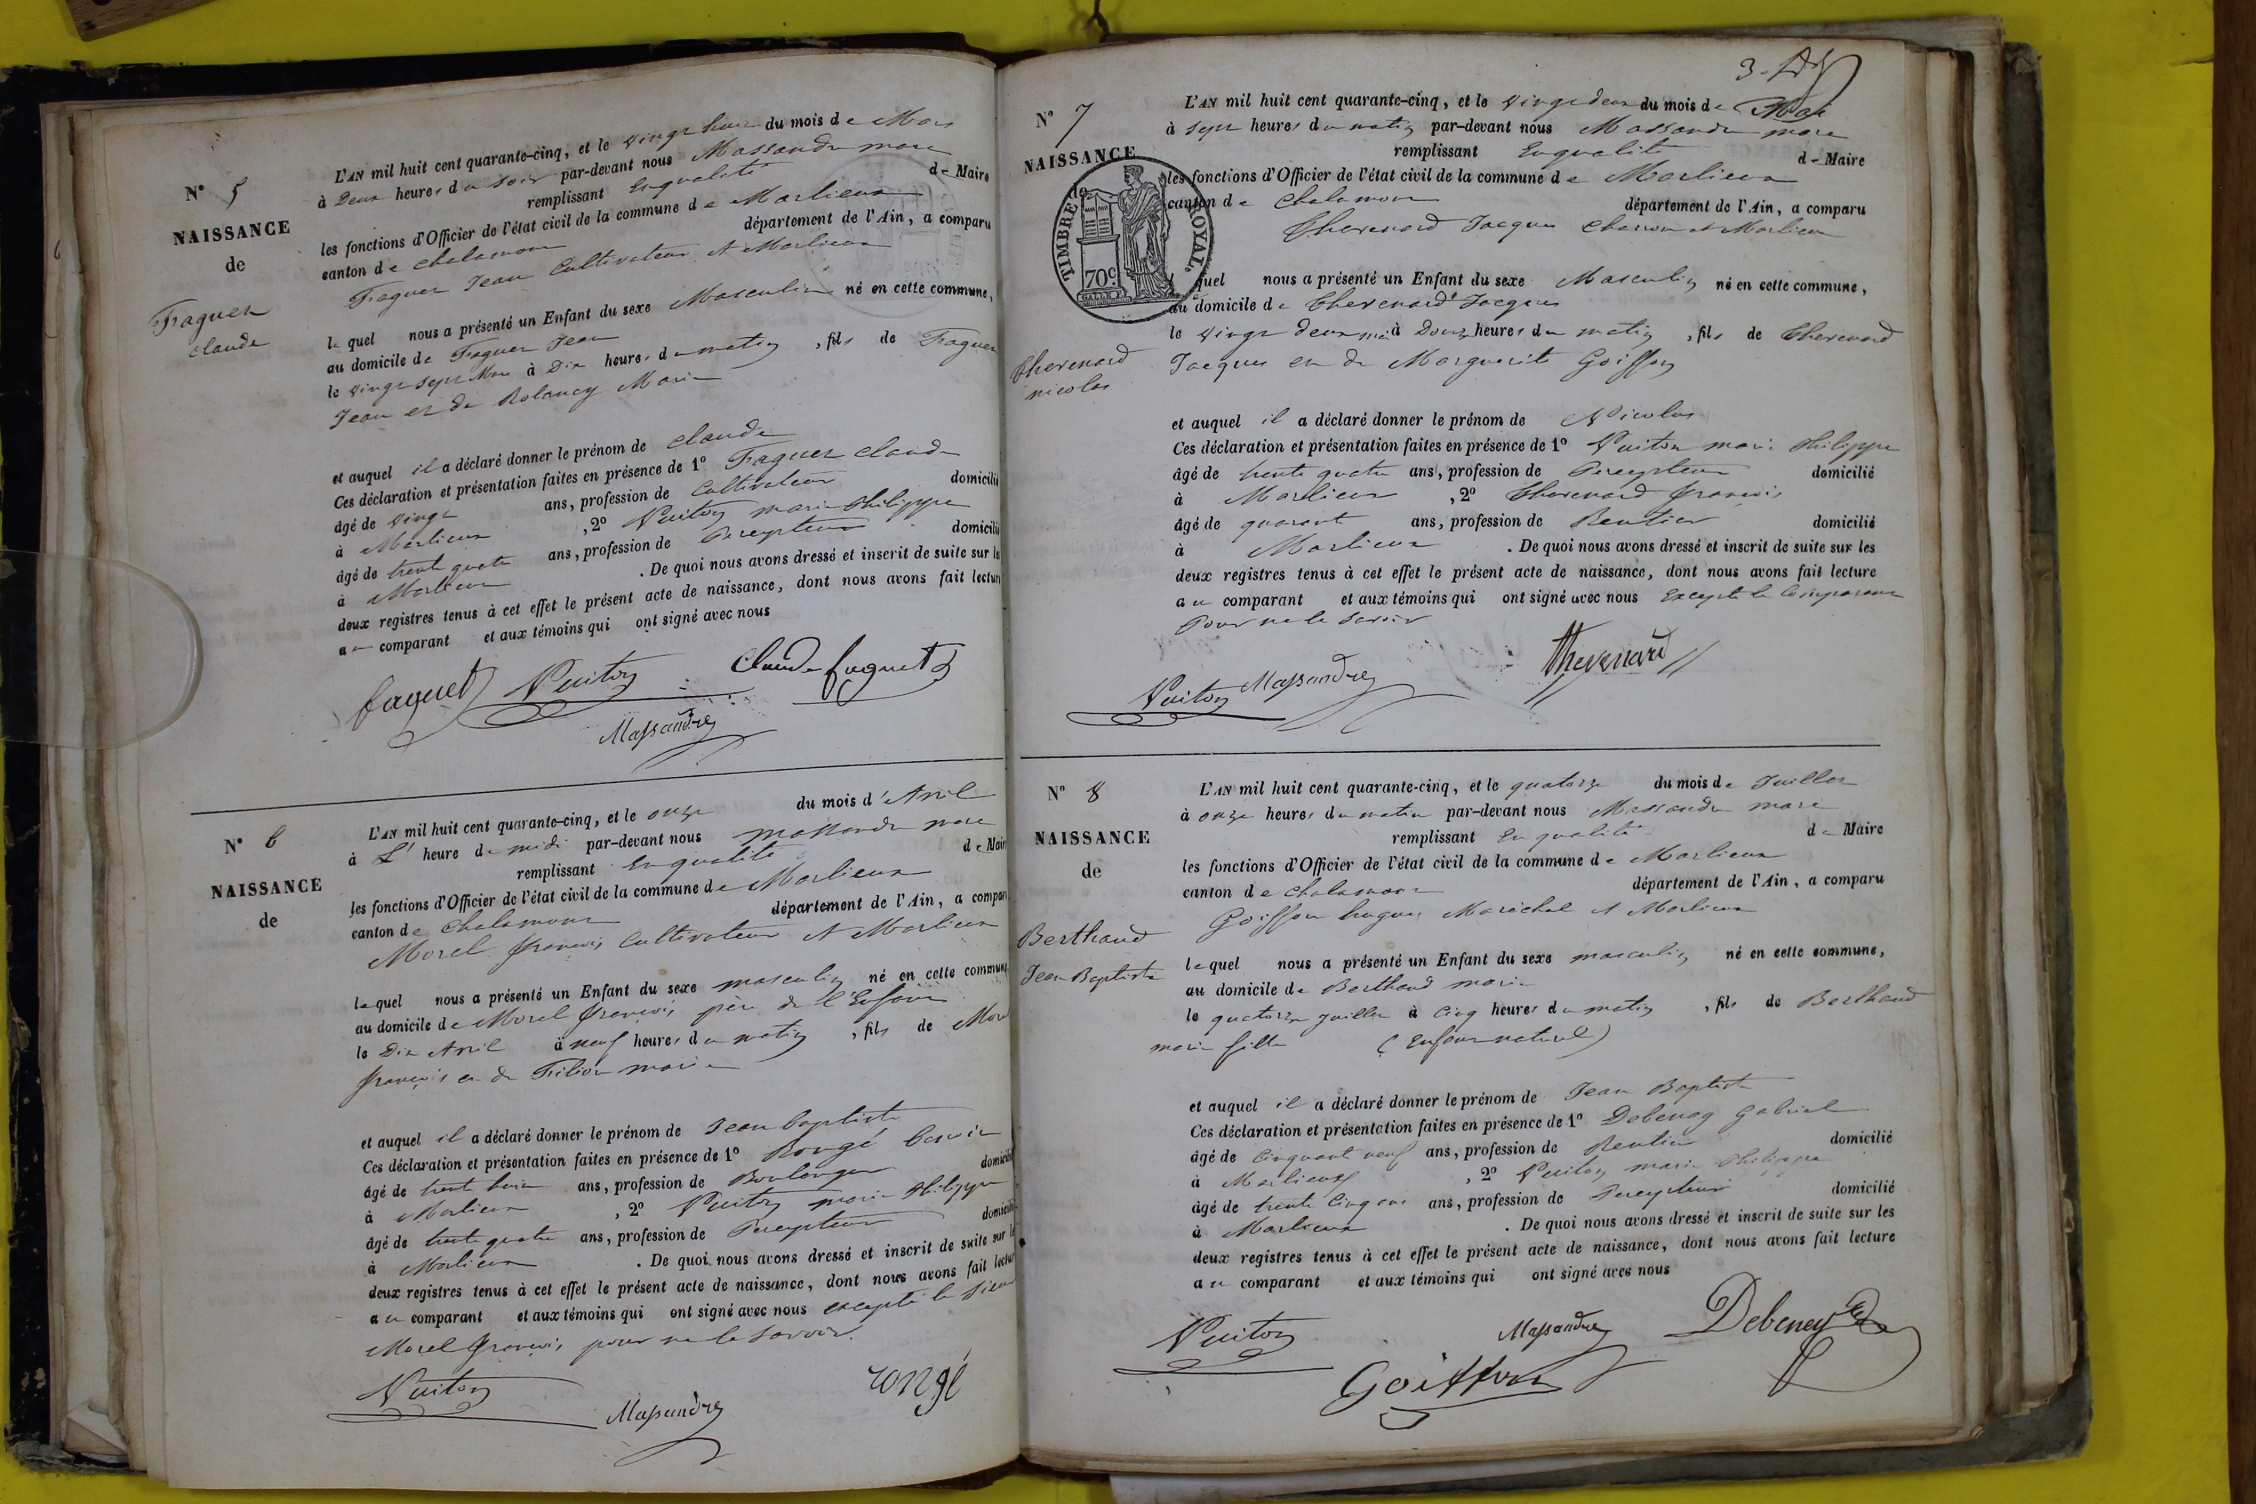 N° 5
NAISSANCE
de
Faguet
claude
L'AN mil huit cent quarante-cinq, et le vingt huit du mois de Mars
à Deux heures du soir par-devant nous Massandre marc
remplissant En qualité de Maire
les fonctions d'Officier de l'état civil de la commune de Marlieux
canton de chalamont département de l'Ain, a comparu
Faguet Jean Cultivateur A Marlieux
lequel nous a présenté un Enfant du sexe Masculin né en cette commune,
au domicile de Faguet Jean
le vingt sept Mars à Dix heures du matin, fils de Faguet
Jean et de Marie
et auquel il a déclaré donner le prénom de claude
Ces déclaration et présentation faites en présence de 1° Faguet claude
âgé de vingt ans, profession de Cultivateur domicilié
à Marlieux, 2° Vuiton marie Philippe
âgé de trente quatre ans, profession de Percepteur domicilié
à Marlieux. De quoi nous avons dressé et inscrit de suite sur les
deux registres tenus à cet effet le présent acte de naissance, dont nous avons fait lecture
au comparant et aux témoins qui ont signé avec nous
faguet Vuiton Claude faguet
Massandre
N° 6
NAISSANCE
de
L'AN mil huit cent quarante-cinq, et le onze du mois d'Avril
à L' heure de midi par-devant nous massandre marc
remplissant En qualité de Maire
les fonctions d'Officier de l'état civil de la commune de Marlieux
canton de Chalamont département de l'Ain, a comparu
Morel françois Cultivateur A Marlieux
lequel nous a présenté un Enfant du sexe masculin né en cette commune
au domicile de Morel françois père de l'Enfant
le Dix Avril à neuf heures du matin, fils de Morel
françois et de Filion marie
et auquel il a déclaré donner le prénom de Jean baptiste
Ces déclaration et présentation faites en présence de 1° Rongé
âgé de trente huit ans, profession de Boulanger domicilié
à Marlieux, 2° Vuiton marie Philippe
âgé de trente quatre ans, profession de Percepteur domicilié
à Marlieux. De quoi nous avons dressé et inscrit de suite sur les
deux registres tenus à cet effet le présent acte de naissance, dont nous avons fait lecture
au comparant et aux témoins qui ont signé avec nous excepté le sieur
Morel françois pour ne le savoir.
Vuiton Massandre rongé
3
N° 7
NAISSANCE
de
TIMBRE ROYAL.
70 c.
Thevenard
nicolas
L'AN mil huit cent quarante-cinq, et le vingt deux du mois de Mai
à sept heures du matin par-devant nous Massandre marc
remplissant En qualité de Maire
les fonctions d'Officier de l'état civil de la commune de Marlieux
canton de Chalamont département de l'Ain, a comparu
Thevenard Jacques Charron A Marlieux
lequel nous a présenté un Enfant du sexe Masculin né en cette commune,
au domicile de Thevenard Jacques
le vingt deux mai à Douze heures du matin, fils de Thevenard
Jacques et de Marguerite Goiffon
et auquel il a déclaré donner le prénom de Nicolas
Ces déclaration et présentation faites en présence de 1° Vuiton marie Philippe
âgé de trente quatre ans, profession de Percepteur domicilié
à Marlieux, 2° Thevenard françois
âgé de quarante ans, profession de Rentier domicilié
à Marlieux. De quoi nous avons dressé et inscrit de suite sur les
deux registres tenus à cet effet le présent acte de naissance, dont nous avons fait lecture
au comparant et aux témoins qui ont signé avec nous Excepté le Comparant
Pour ne le savoir
Vuiton Massandre Thevenard
N° 8
NAISSANCE
de
Berthaud
Jean Baptiste
L'AN mil huit cent quarante-cinq, et le quatorze du mois de Juillet
à onze heures du matin par-devant nous Massandre marc
remplissant En qualité de Maire
les fonctions d'Officier de l'état civil de la commune de Marlieux
canton de chalamont département de l'Ain, a comparu
Goiffon hugues Maréchal A Marlieux
lequel nous a présenté un Enfant du sexe masculin né en cette commune,
au domicile de Berthaud marie
le quatorze juillet à Cinq heures du matin, fils de Berthaud
marie fille (Enfant naturel)
et auquel il a déclaré donner le prénom de Jean Baptiste
Ces déclaration et présentation faites en présence de 1° Debeney Gabriel
âgé de Cinquante neuf ans, profession de Rentier domicilié
à Marlieux, 2° Vuiton marie Philippe
âgé de trente Cinq ans ans, profession de Percepteur domicilié
à Marlieux. De quoi nous avons dressé et inscrit de suite sur les
deux registres tenus à cet effet le présent acte de naissance, dont nous avons fait lecture
au comparant et aux témoins qui ont signé avec nous
Vuiton Massandre Debeney
Goiffon